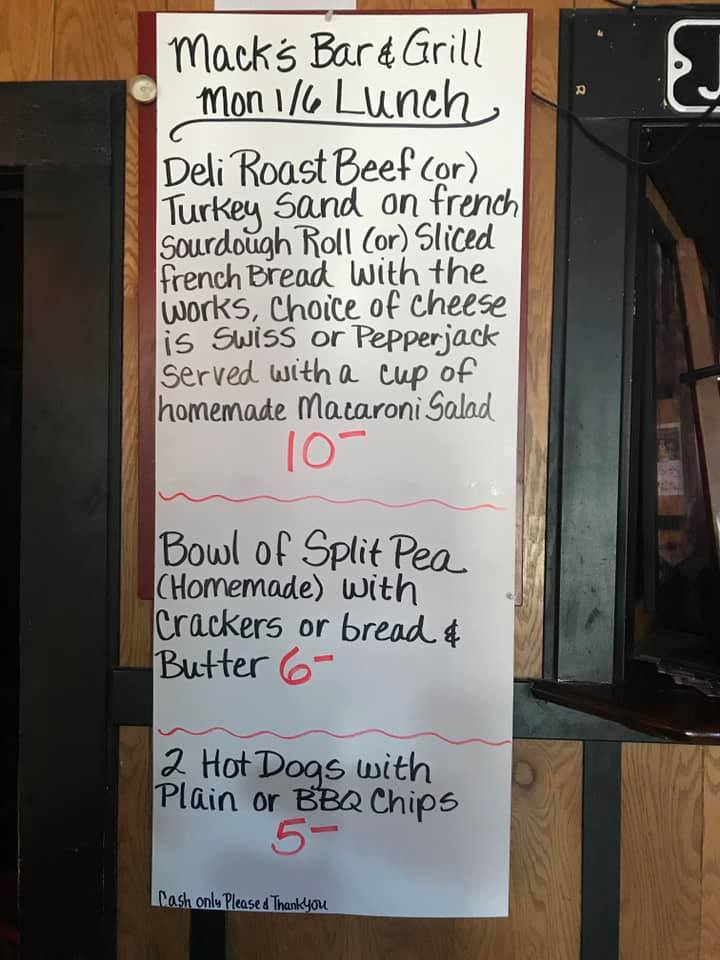 Mack's Bar & Grill
Mon 1/6 Lunch
Deli Roast Beef (or)
Turkey Sand on french
Sourdough Roll (or) Sliced
french Bread with the
works, Choice of cheese
is Swiss or Pepperjack
Served with a cup of
homemade Macaroni Salad
10-
Bowl of Split Pea
(Homemade) with
Crackers or bread &
Butter 6-
2 Hot Dogs with
Plain or BBQ Chips
5-
Cash only Please & Thankyou